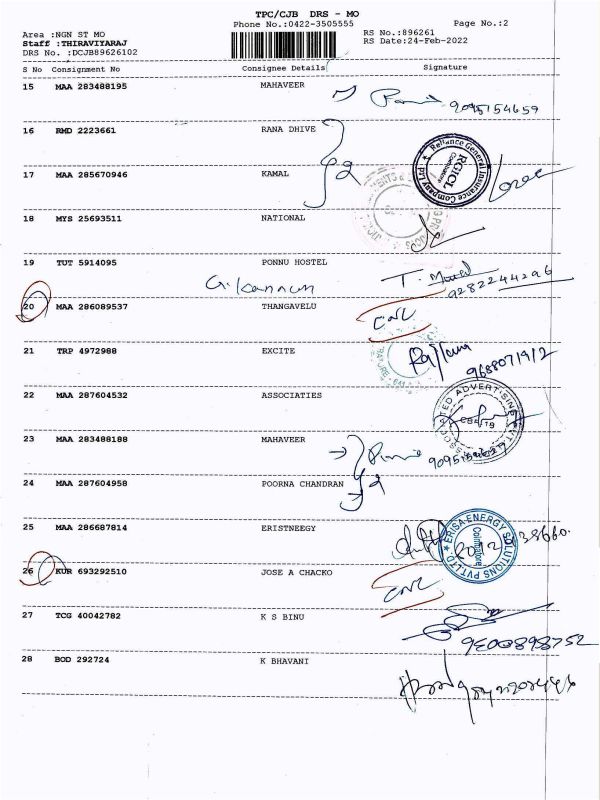 TPC/CJB DRS - MO
Phone No.:0422-3505555
Page No.:2
Area :NGN ST MO
RS No.:896261
Staff :THIRAVIYARAJ
RS Date:24-Feb-2022
DRS No. :DCJB89626102
S No Consignment No Consignee Details Signature
15 MAA 283488195 MAHAVEER
9095154659
16 RMD 2223661 RANA DHIVE
Reliance General Insurance Company
RGICL
17 MAA 285670946 KAMAL
18 MYS 25693511 NATIONAL
19 TUT 5914095 PONNU HOSTEL
G. Kannan
9282244296
20 MAA 286089537 THANGAVELU
21 TRP 4972988 EXCITE
22 MAA 287604532 ASSOCIATIES
23 MAA 283488188 MAHAVEER
24 MAA 287604958 POORNA CHANDRAN
25 MAA 286687814 ERISTNEEGY
ERISA-ENERGY SOLUTIONS PVT.LTD
Coimbatore
26 KUR 693292510 JOSE A CHACKO
27 TCG 40042782 K S BINU
9300898752
28 BOD 292724 K BHAVANI